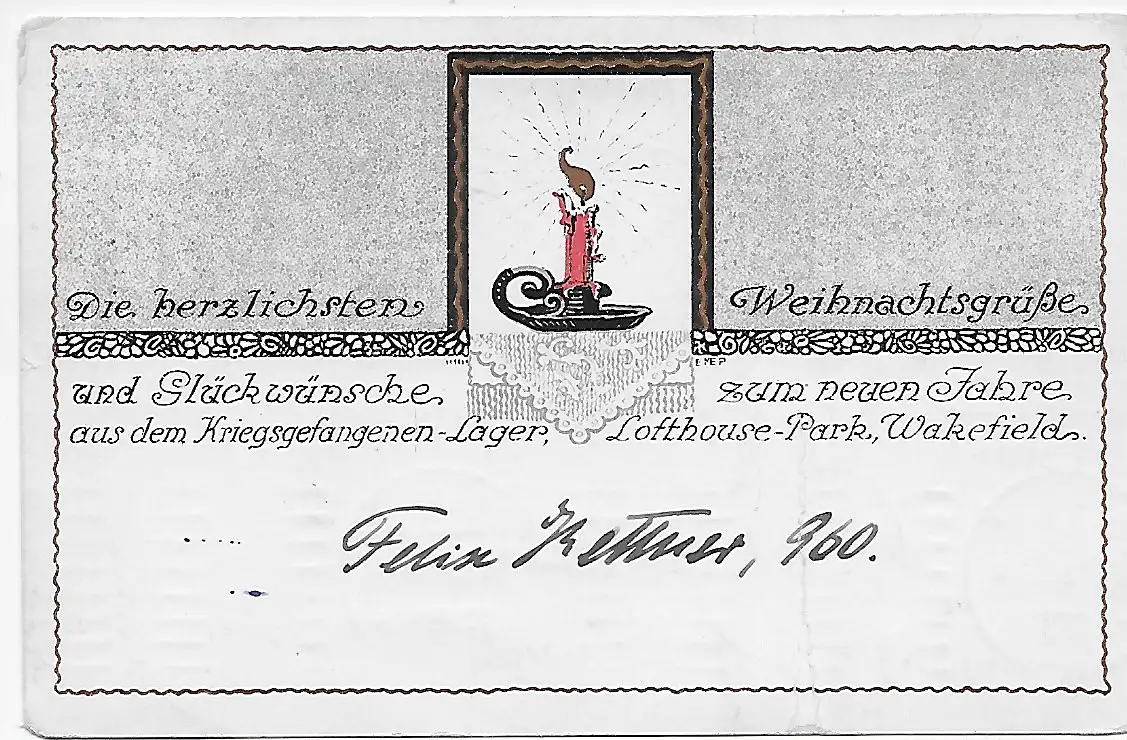 Die herzlichsten Weihnachtsgrüße
und Glückwünsche zum neuen Jahre
aus dem Kriegsgefangenen-Lager, Lofthouse-Park, Wakefield.
Felix Kettner, 960.